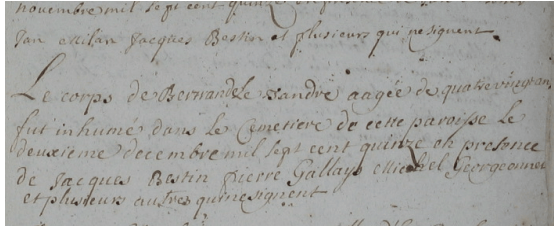 novembre mil sept cent quin
Jan Milan Jacques Bestin et plusieurs qui ne signent
Le corps de Bertrande Le Sandre aagée de quatre vingt an
fut inhumé dans le Cemetiere de cette paroisse le
deuxieme decembre mil sept cent quinze en presence
de Jacques Bestin pierre Gallays Michel Georgeonnet
et plusieurs autres qui ne signent